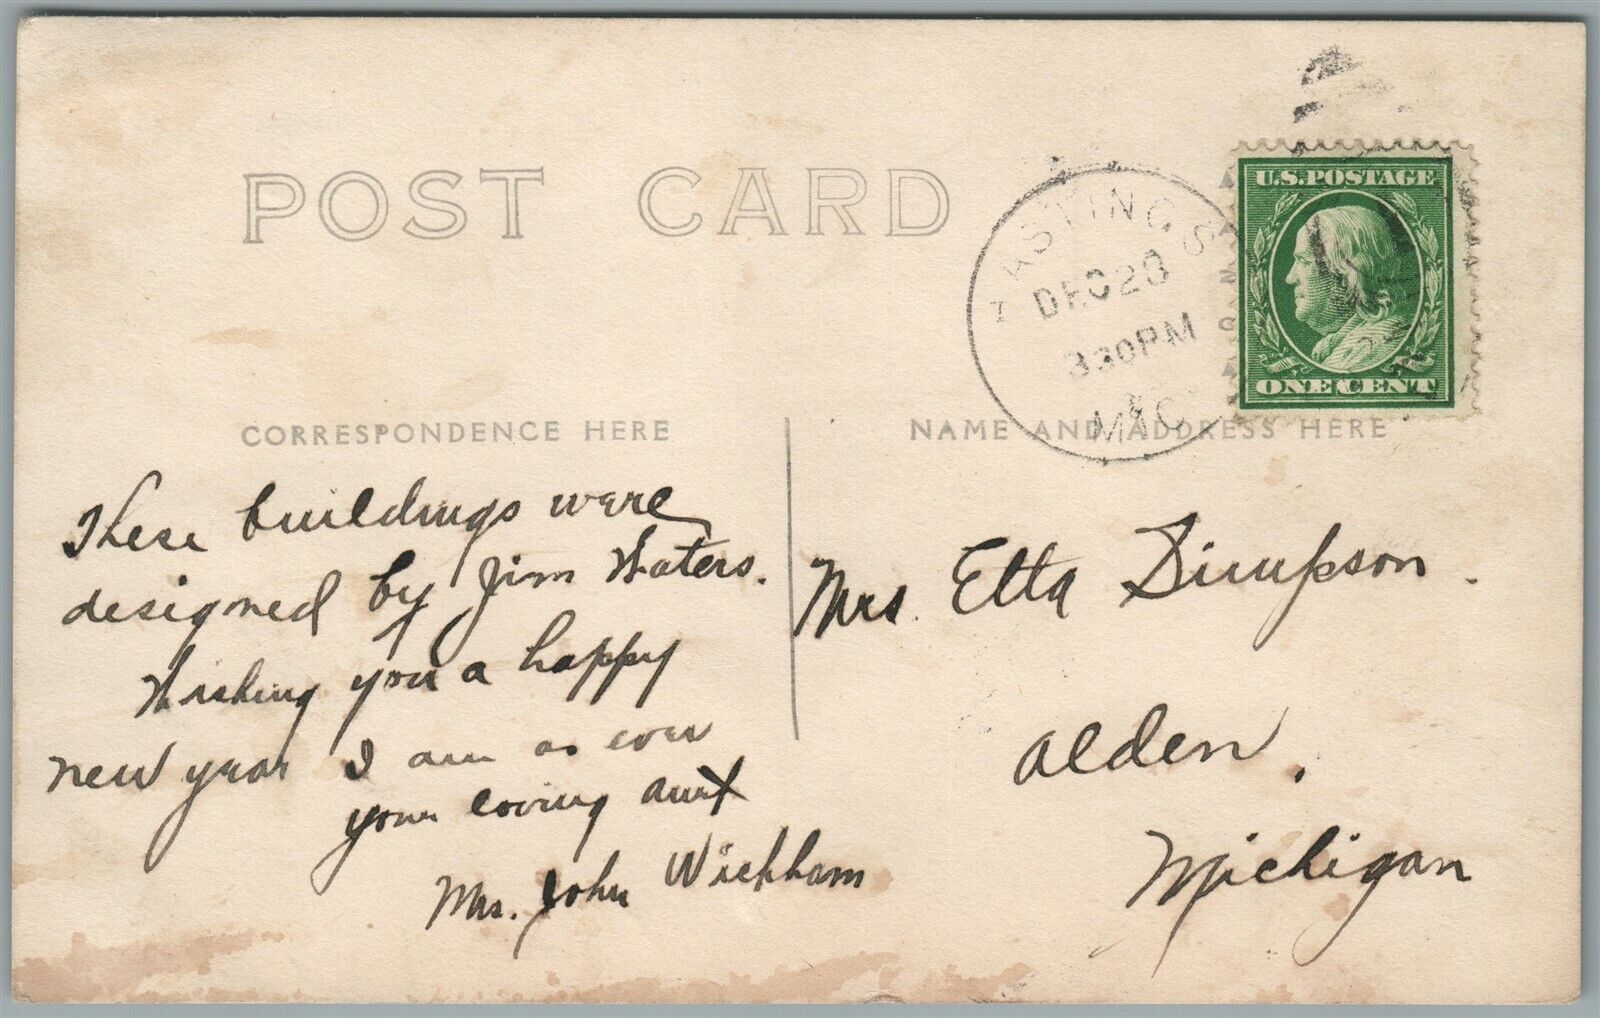 POST CARD
HASTINGS
DEC 20
330PM
MICH
U.S. POSTAGE
ONE CENT
CORRESPONDENCE HERE
NAME AND ADDRESS HERE
These buildings were
designed by Jim Waters.
Wishing you a happy
new year I am as ever
your loving aunt
Mrs. John Wickham
Mrs. Etta Simpson.
Alden,
Michigan